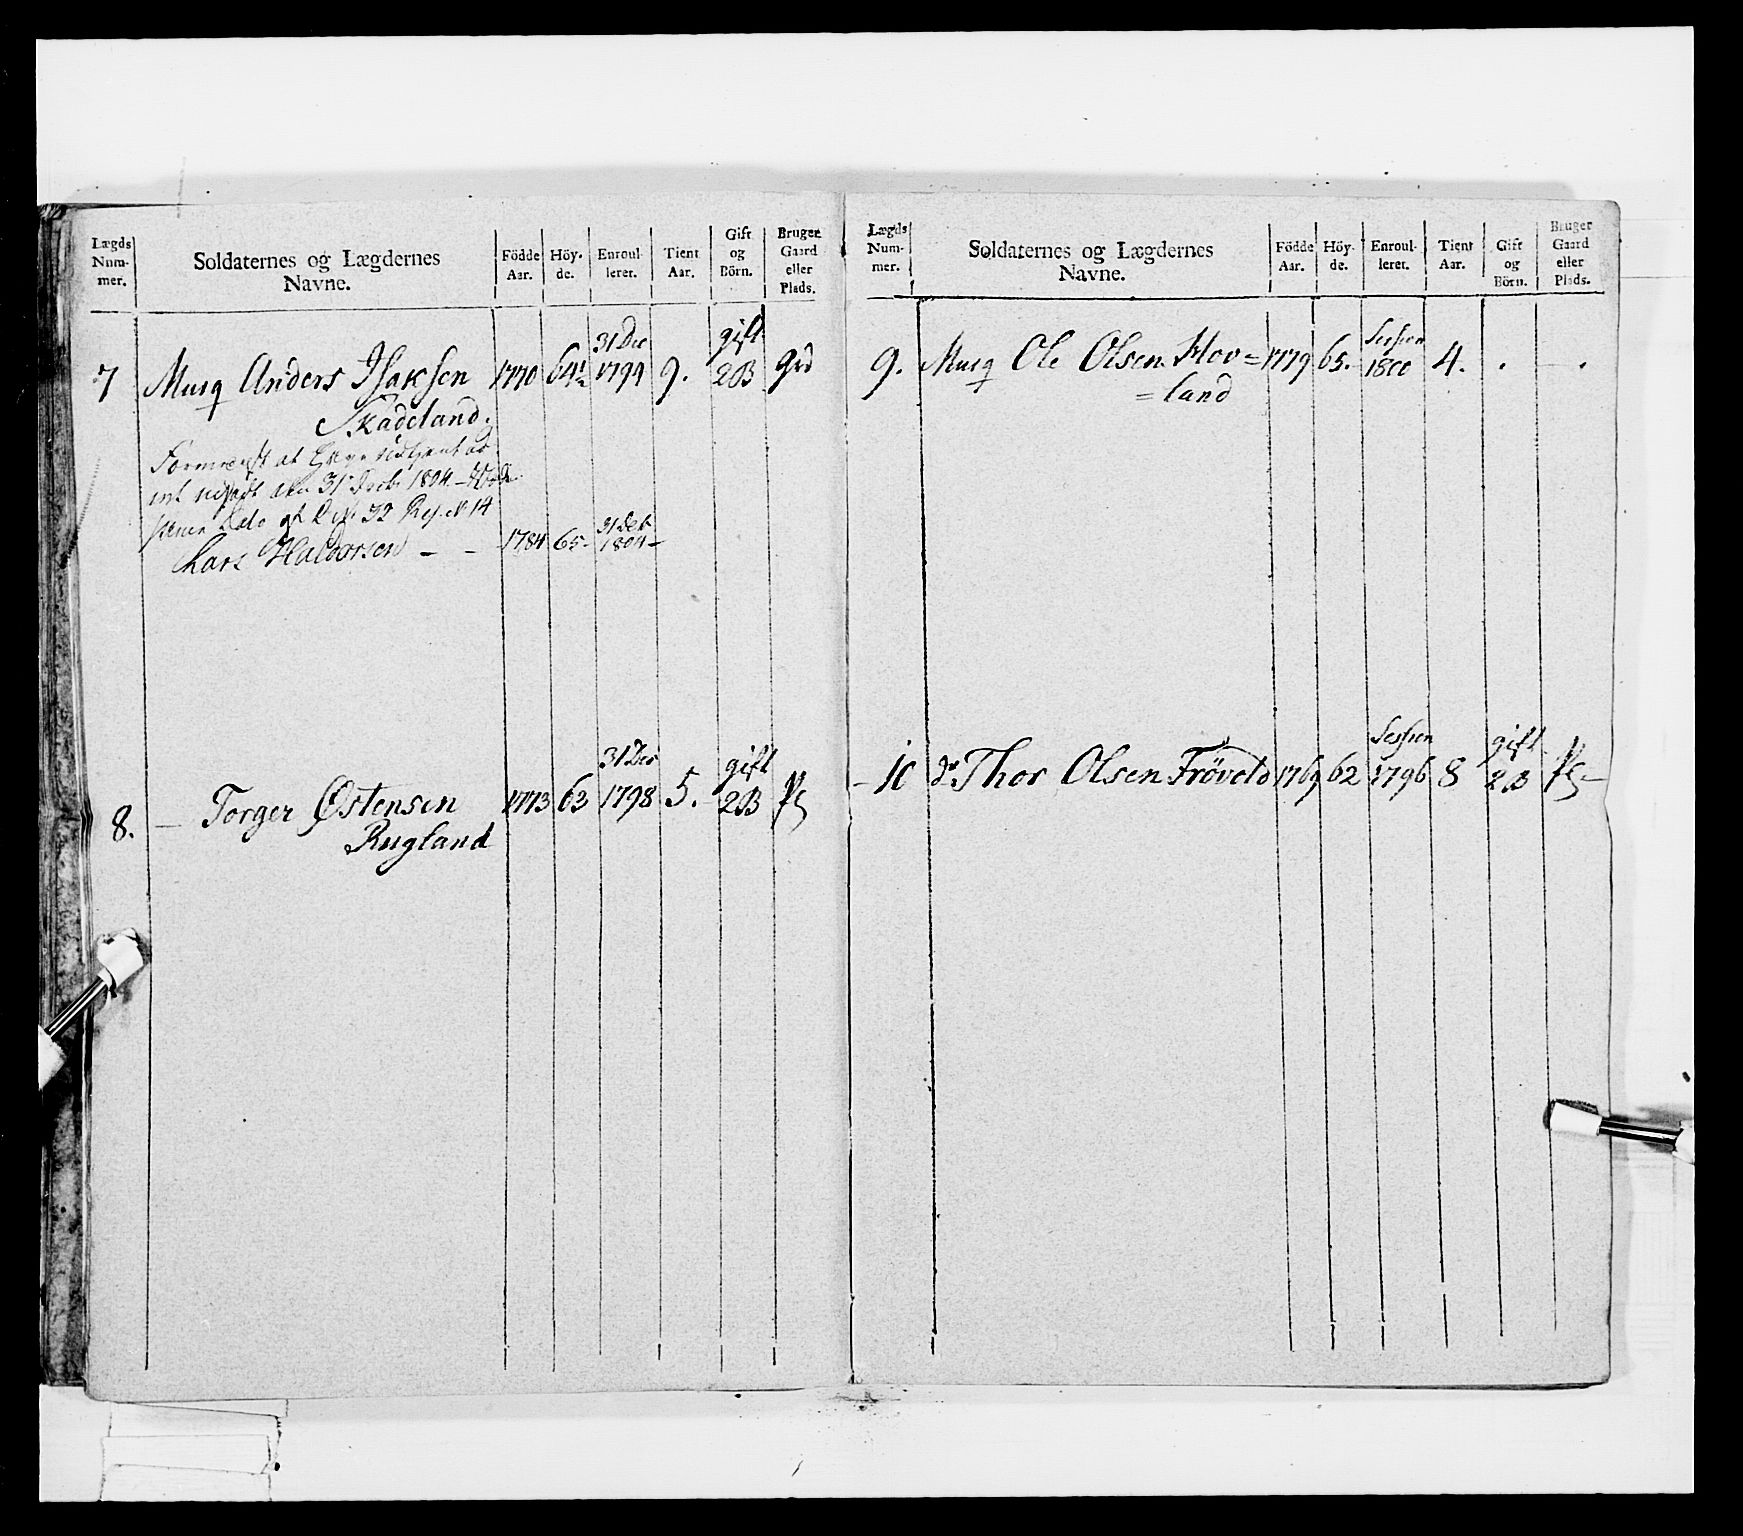 Lægds Num- mer.
Soldaternes og Lægdernes Navne.
Födde Aar.
Höy- de.
Enroul- leret.
Tient Aar.
Gift og Börn.
Bruger Gaard eller Plads.
7 Musq Anders Isaksen 1770 64½ 31 Dec 1799 9. gift 2B Grd
Skadeland.
31 Decb 1804
No 14
Lars Haldorsen - - 1784 65- 31 Dec 1804-
8. — Torger Østensen 1773 63 31 Dec 1798 5. gift 2B Pl
Rugland
Lægds Num- mer.
Soldaternes og Lægdernes Navne.
Födde Aar.
Höy- de.
Enroul- leret.
Tient Aar.
Gift og Börn.
Bruger Gaard eller Plads.
9. Musq Ole Olsen Hov= 1779 65. Session 1800 4. . — .
=land
— 10 do Thor Olsen Frövold 1769 62 Session 1796 8 gift 2B Pl—